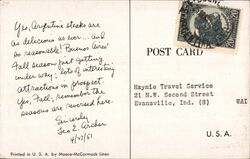 Yes, Argentine steaks are
as delicious as ever... and
so reasonable! Buenos Aires'
Fall season just getting
under way. Lots of interesting
attractions in prospect
Yes, Fall; remember the
seasons are reversed here.
Sincerely
Leo E. Archer
4/27/61
Printed in U. S. A. by Moore-McCormack Lines
POST CARD
Haynie Travel Service
21 N.W. Second Street
Evansville, Ind. (8)
WAI
U. S. A.